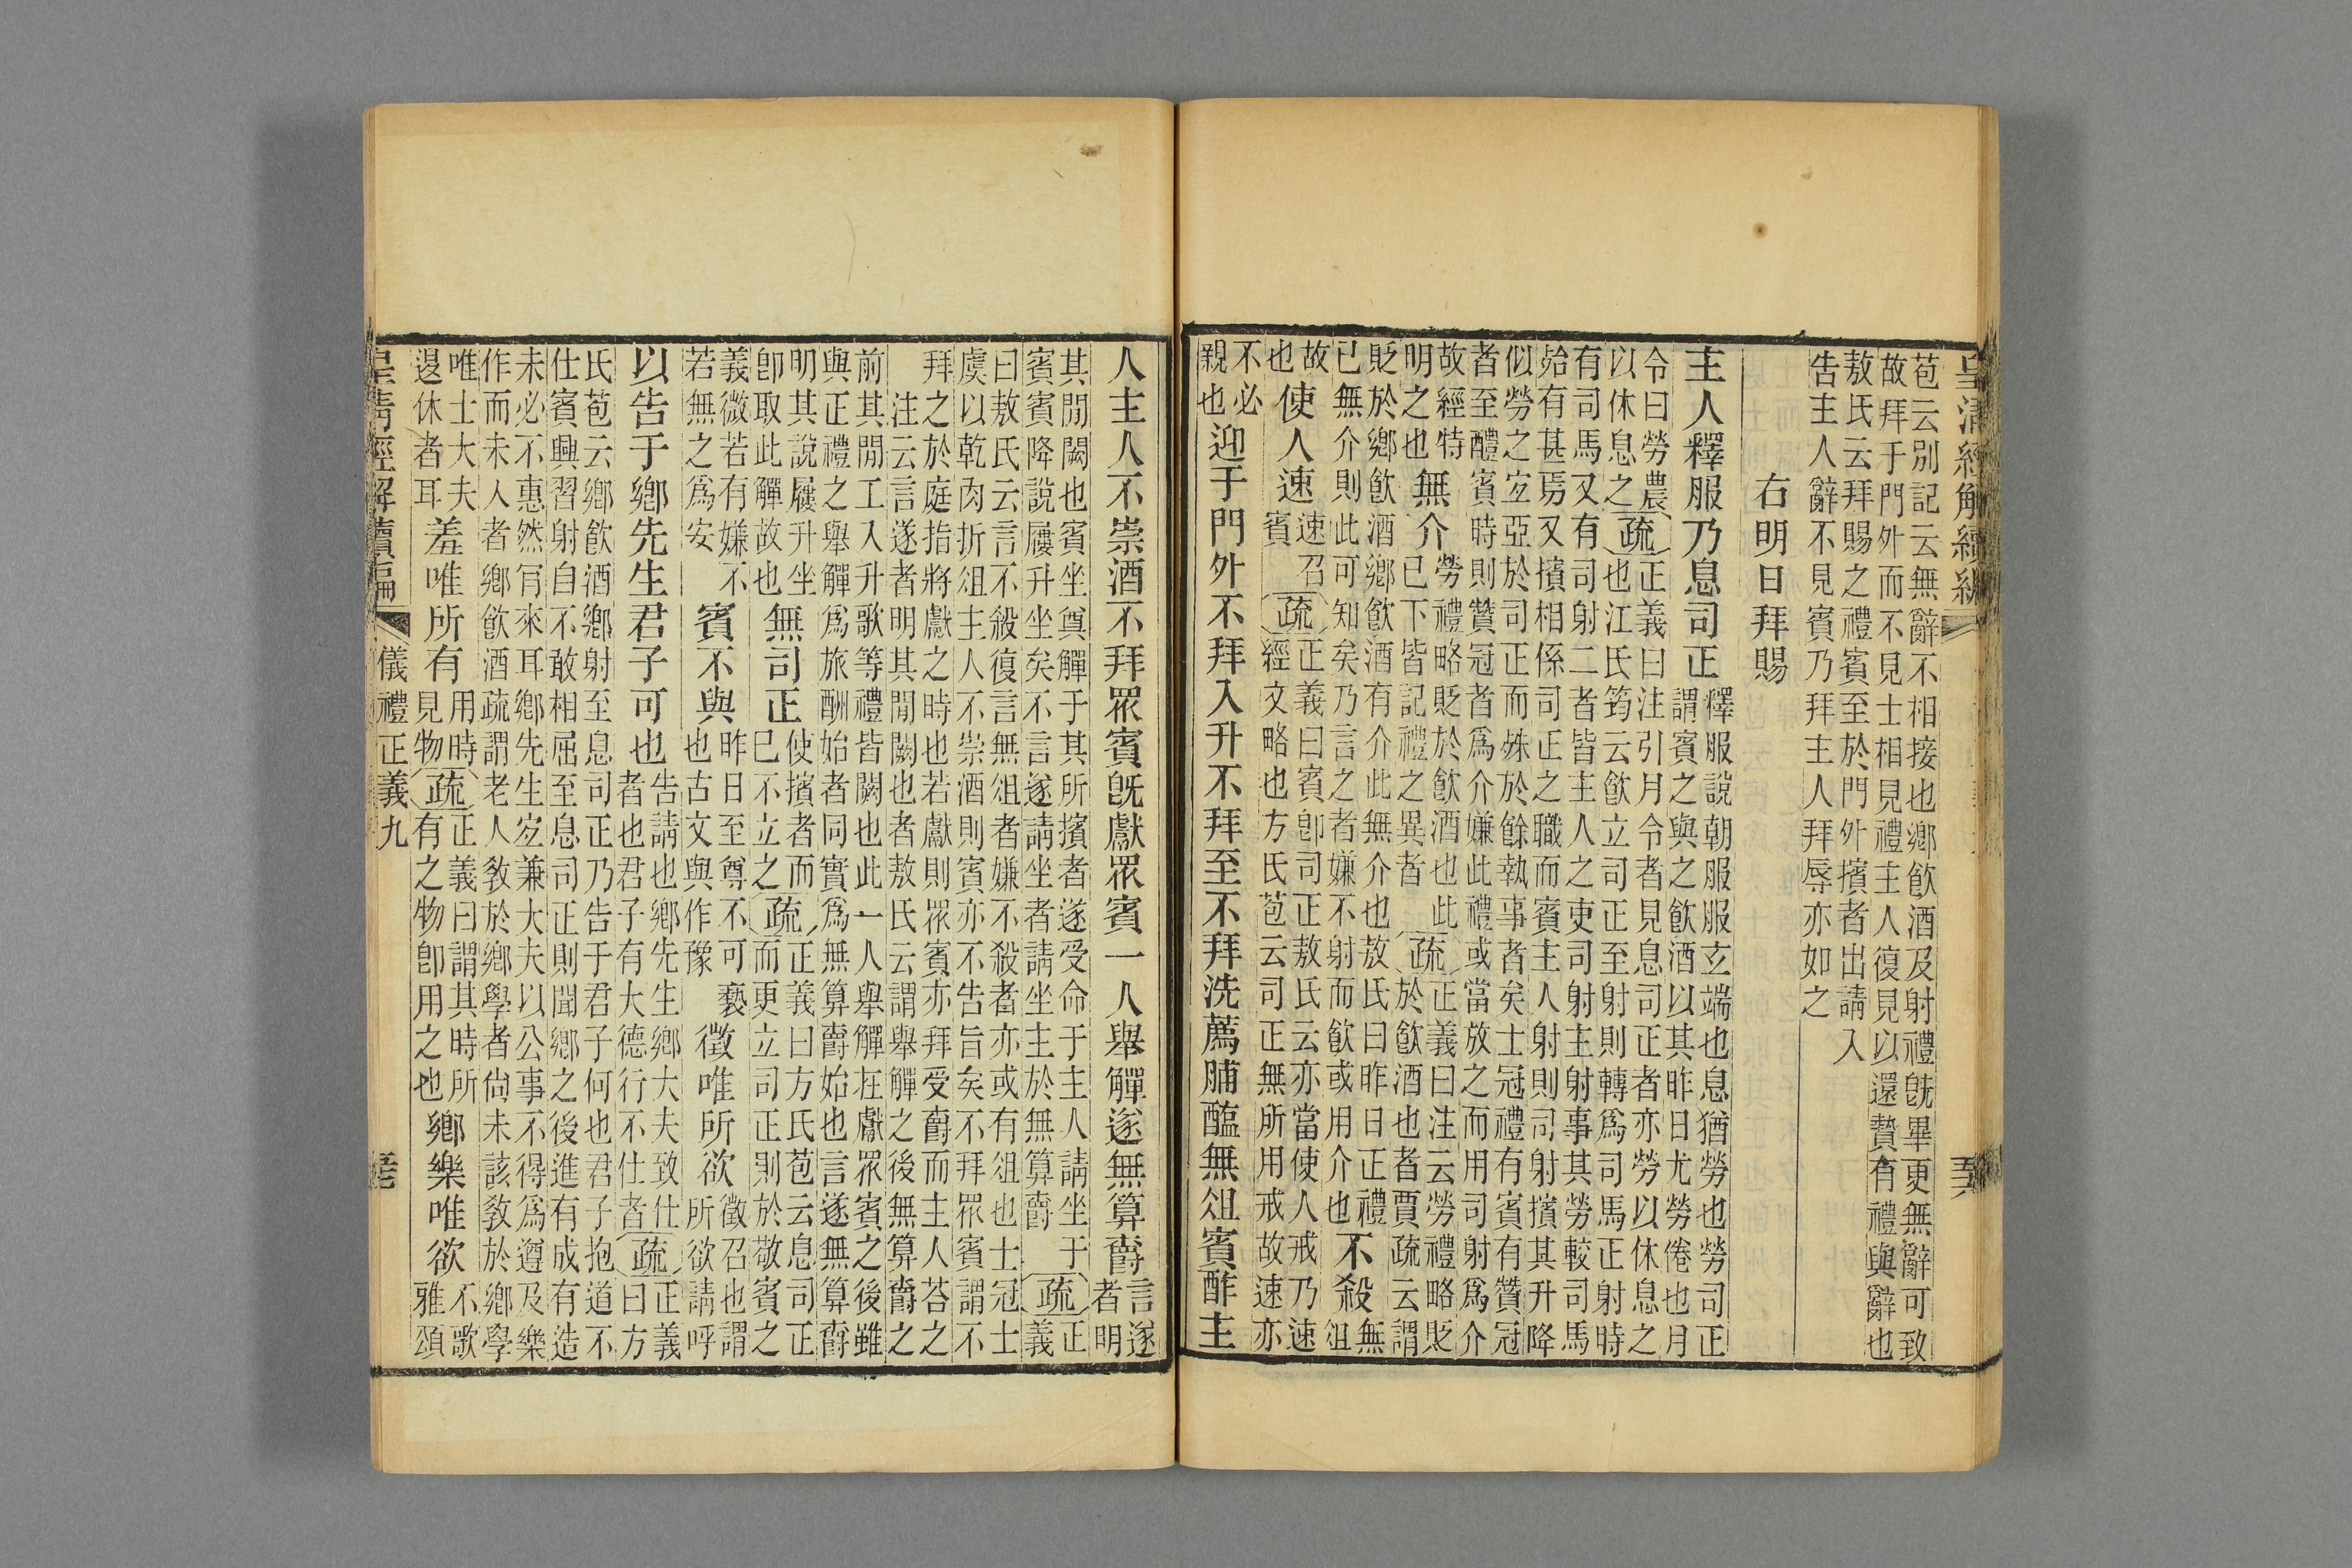 皇清經解續編
苞云別記云無辭不相接也鄉飲酒及射禮旣畢更無辭可致
故拜于門外而不見士相見禮主人復見以還贄有禮與辭也
敖氏云拜賜之禮賓至於門外擯者出請入
告主人辭不見賓乃拜主人拜辱亦如之
右明日拜賜
主人釋服乃息司正釋服說朝服服玄端也息猶勞也勞司正謂賓之與之飲酒以其昨日尤勞倦也月
令曰勞農以休息之疏正義曰注引月令者見息司正者亦勞以休息之也江氏筠云飲立司正至射則轉爲司馬正射時
有司馬又有司射二者皆主人之吏司射主射事其勞較司馬
始有甚焉又擯相係司正之職而賓主人射則司射擯其升降
似勞之宐亞於司正而姝於餘執事者矣士冠禮有賓有贊冠
者至醴賓時則贊冠者爲介嫌此禮或當放之而用司射爲介
故經特明之也無介勞禮略貶於飲酒也此已下皆記禮之異者疏正義曰注云勞禮略貶於飲酒也者賈疏云謂
貶於鄉飲酒鄉飲酒有介此無介也敖氏曰昨日正禮已無介則此可知矣乃言之者嫌不射而飲或用介也不殺無俎
故也使人速速召賓疏正義曰賓卽司正敖氏云亦當使人戒乃速經文略也方氏苞云司正無所用戒故速亦
不必親也迎于門外不拜入升不拜至不拜洗薦脯醢無俎賓酢主
人主人不崇酒不拜眾賓旣獻眾賓一人舉觶遂無算爵言遂者明
其閒闕也賓坐奠觶于其所擯者遂受命于主人請坐于賓賓降說屨升坐矣不言遂請坐者請坐主於無算爵疏正義
曰敖氏云言不殺復言無俎者嫌不殺者亦或有俎也士冠士
虞以乾肉折俎主人不崇酒則賓亦不告旨矣不拜眾賓謂不
拜之於庭指將獻之時也若獻則眾賓亦拜受爵而主人荅之
注云言遂者明其閒闕也者敖氏云謂舉觶之後無算爵之
前其閒工入升歌等禮皆闕也此一人舉觶在獻眾賓之後雖
與正禮之舉觶爲旅酬始者同實爲無算爵始也言遂無算爵
明其說屨升坐卽取此觶故也無司正使擯者而已不立之疏正義曰方氏苞云息司正而更立司正則於敬賓之
義微若有嫌不若無之爲安賓不與昨日至尊不可褻也古文與作豫徵唯所欲徵召也謂所欲請呼
以告于鄉先生君子可也告請也鄉先生鄉大夫致仕者也君子有大德行不仕者疏正義曰方
氏苞云鄉飲酒鄉射至息司正乃告于君子何也君子抱道不
仕賓興習射自不敢相屈至息司正則聞鄉之後進有成有造
未必不惠然肯來耳鄉先生宐兼大夫以公事不得爲遵及樂
作而未入者鄉飲酒疏謂老人教於鄉學者尙未該教於鄉學
唯士大夫遐休者耳羞唯所有用時見物疏正義曰謂其時所有之物卽用之也鄉樂唯欲不歌雅頌
皇清經解續編 儀禮正義九